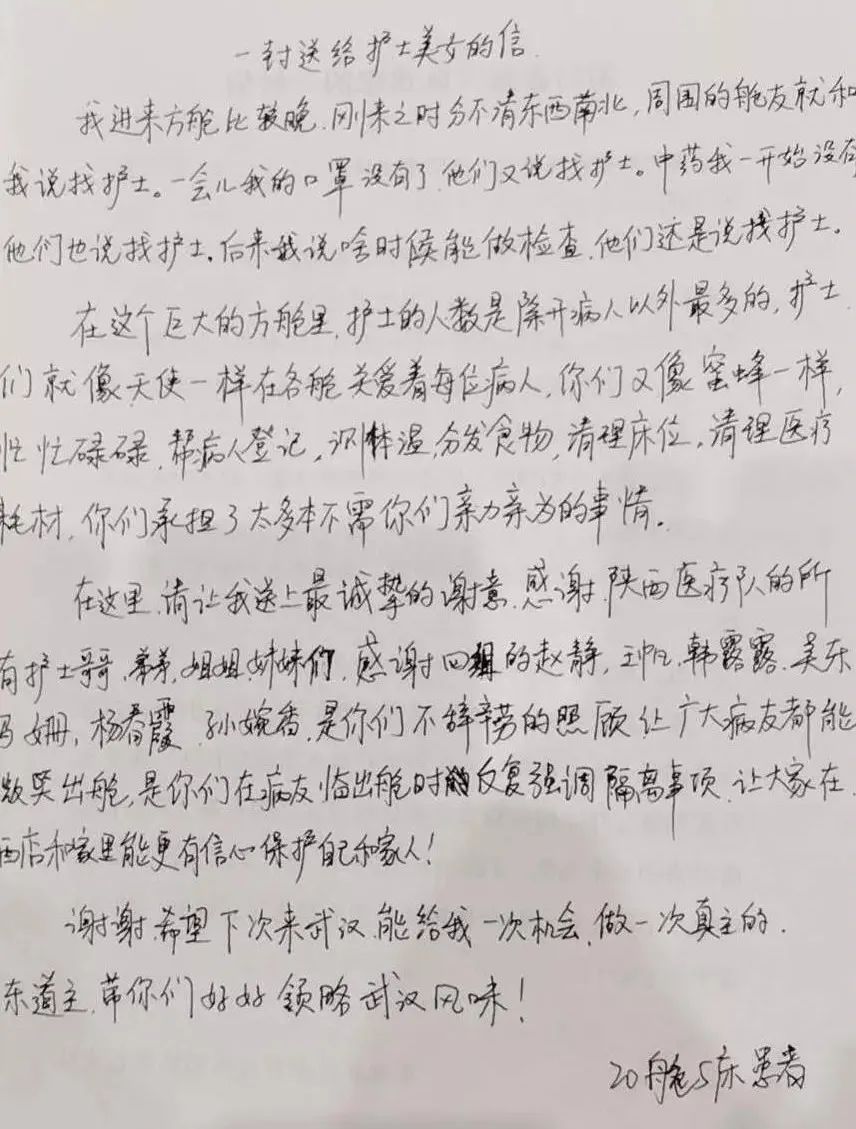 一封送给护士美女的信.
我进来方舱比较晚.刚来之时分不清东西南北,周围的舱友就和
我说找护士。一会儿我的口罩没有了.他们又说找护士。中药我一开始没有
他们也说找护士.后来我说啥时候能做检查.他们还是说找护士.
在这个巨大的方舱里.护士的人数是除开病人以外最多的,护士
们就像天使一样在各舱关爱着每位病人,你们又像蜜蜂一样,
忙忙碌碌.帮病人登记,测体温,分发食物,清理床位,清理医疗
耗材,你们承担了太多本不需你们亲力亲为的事情。
在这里.请让我送上最诚挚的谢意.感谢.陕西医疗队的所
有护士哥哥.弟弟,姐姐.妹妹们.感谢四组的赵静,王帆.韩露露.吴东
马姗,杨春霞.孙婉香.是你们不辞辛劳的照顾让广大病友都能
微笑出舱,是你们在病友临出舱时反复强调隔离事项.让大家在
酒店和家里能更有信心保护自己和家人!
谢谢.希望下次来武汉.能给我一次机会.做一次真主的.
东道主.带你们好好领略武汉风味!
20舱5床患者